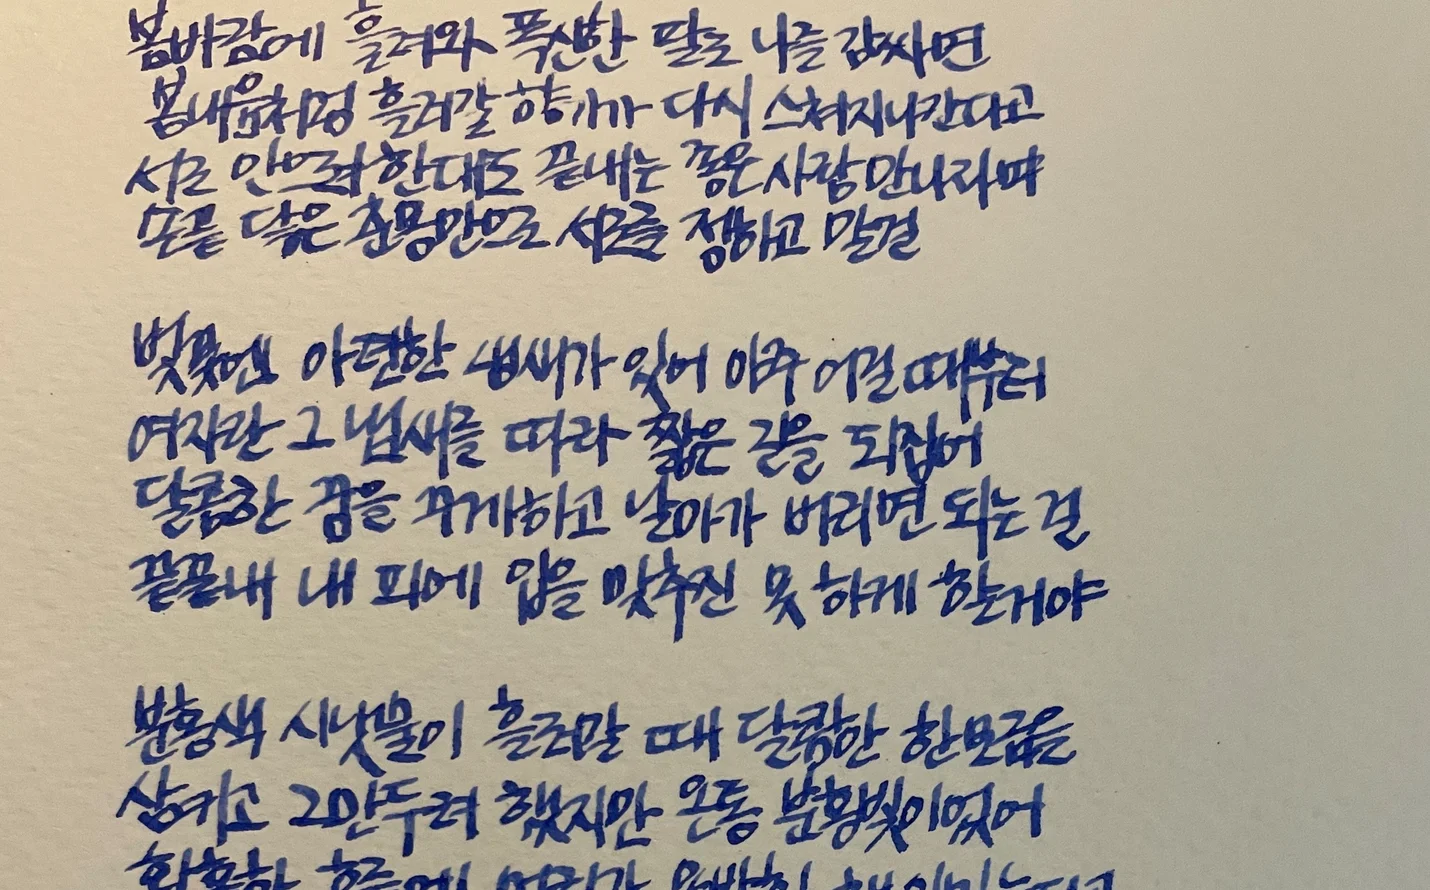 봄바람에 흘려와 폭신한 팔로 나를 감싸면
봄내음처럼 흘러갈 향기가 다시 스쳐지나간다고
서로 안으려 한대도 끝내는 좋은 사람 만나라며
손끝 닿은 춘몽만으로 서로를 정하고 말걸
벚꽃엔 아련한 냄새가 있어 아주 어릴 때부터
여자란 그 냄새를 따라 짧은 길을 되집어
달콤한 꿈을 꾸게하고 날아가 버리면 되는 걸
끝끝내 내 피에 입을 맞추진 못 하게 한거야
분홍색 시냇물이 흐르말 때 달콤한 한모금을
삼키고 그만두려 했지만 온통 분홍빛이었어